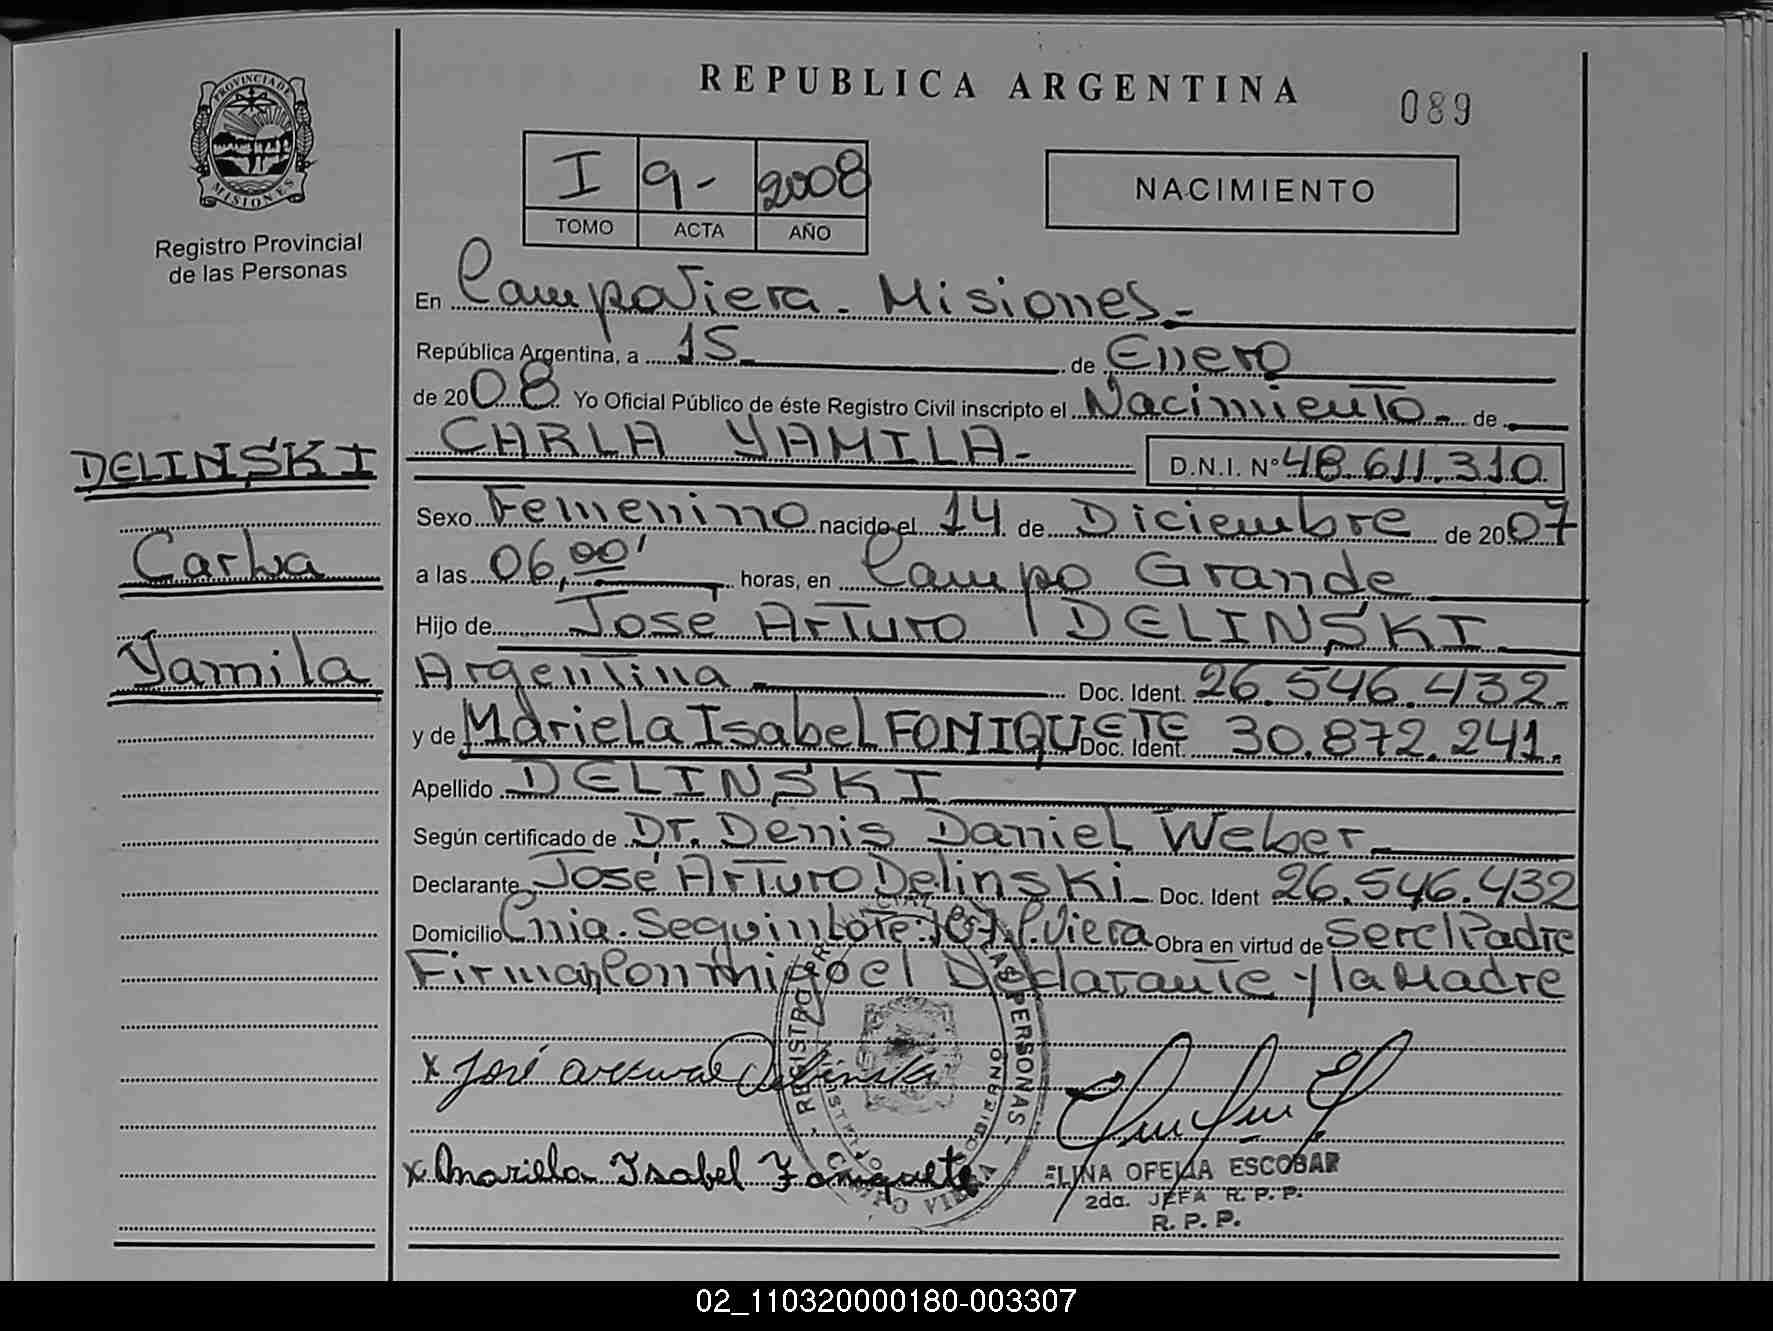 PROVINCIA DE
MISIONES
Registro Provincial
de las Personas
DELINSKI
Carla
Yamila
REPUBLICA ARGENTINA
089
I 9- 2008
TOMO ACTA AÑO
NACIMIENTO
En Campo Viera - Misiones -
República Argentina, a 15 de Enero
de 2008 Yo Oficial Público de éste Registro Civil inscripto el Nacimiento - de
CARLA YAMILA - D.N.I. Nº 48.611.310
Sexo Femenino nacido el 14 de Diciembre de 2007
a las 06,00' horas, en Campo Grande
Hijo de José Arturo DELINSKI
Argentina Doc. Ident. 26.546.432-
y de Mariela Isabel FONIQUETE Doc. Ident. 30.872.241.
Apellido DELINSKI
Según certificado de Dr. Denis Daniel Weber
Declarante José Arturo Delinski Doc. Ident 26.546.432
Domicilio Cnia. Seguin Lote: 107 C. Viera Obra en virtud de ser el Padre
Firman conmigo el Declarante y la Madre
x José Arturo Delinski
x Mariela Isabel Foniquete
REGISTRO PROVINCIAL DE LAS PERSONAS
CAMPO VIERA
ELINA OFELIA ESCOBAR
2da. JEFA R. P. P.
R. P. P.
02_110320000180-003307